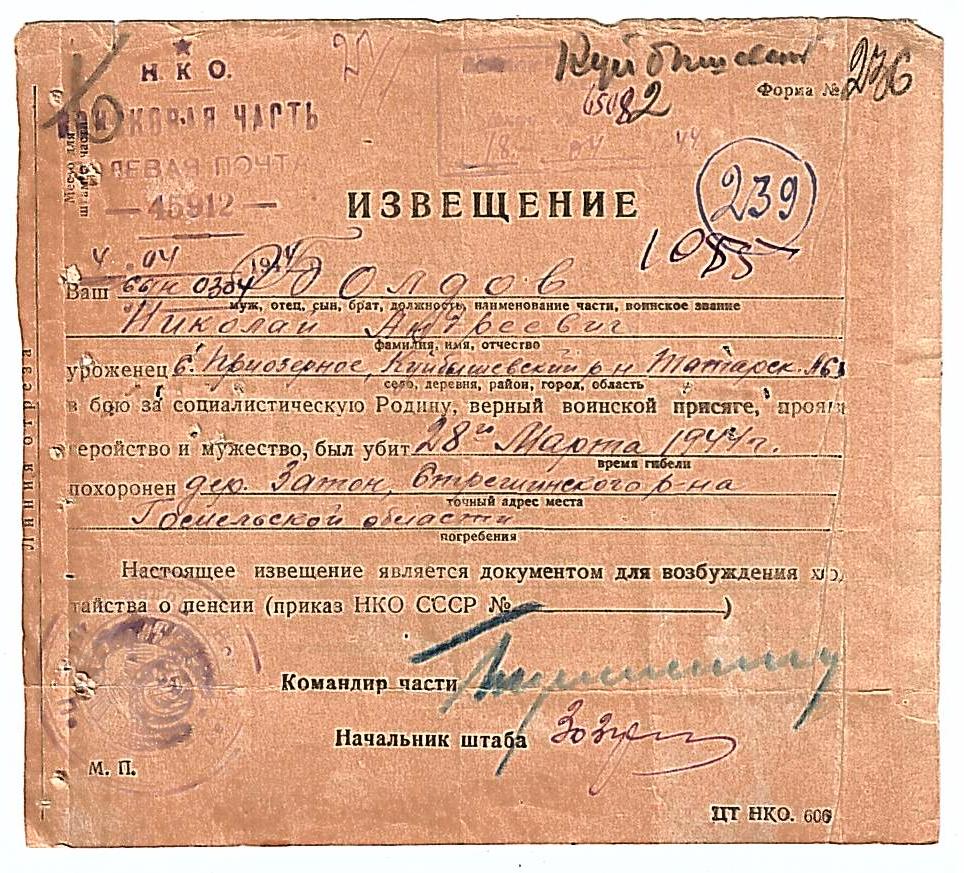 Н К О.
ВОЙСКОВАЯ ЧАСТЬ
ПОЛЕВАЯ ПОЧТА
— 45912 —
4 . 04 1944
Куйбышевский
65082
Форма № 236
18 04 44
ИЗВЕЩЕНИЕ
239
1085
Ваш сын Болдов
муж, отец, сын, брат, должность, наименование части, воинское звание
Николай Андреевич
фамилия, имя, отчество
уроженец с. Приозерное, Куйбышевский р-н Татарск.
село, деревня, район, город, область
в бою за социалистическую Родину, верный воинской присяге, прояви
геройство и мужество, был убит 28го Марта 1944 г.
время гибели
похоронен дер. Затон, Стрешинского р-на
точный адрес места
Гомельской области
погребения
Настоящее извещение является документом для возбуждения хо
тайства о пенсии (приказ НКО СССР № )
Командир части
Начальник штаба
М. П.
ЦТ НКО. 606
Место для
штампа части
Линия отреза